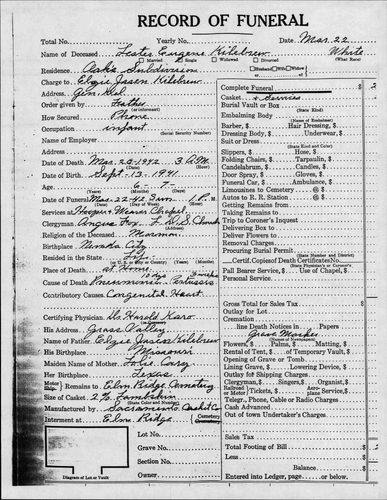 RECORD OF FUNERAL
Total No. Yearly No. Date Mar. 22
Name of Deceased Lester Eugene Kilebrew White
Married Single Widowed Divorced
Residence Oaks Subdivision Husband Wife Widow of
Charge to Elzie Jason Kilebrew
Address Gen. Del.
Order given by Father
(or informant)
How Secured Phone
Occupation infant
(Social Security Number)
Name of Employer
Address
Date of Death Mar. 20-1942 3 A.M.
Date of Birth Sept. 13-1941
Age 6 7
(Years) (Months) (Days)
Date of Funeral Mar-22-42 Sun 1 P.M.
Services at Hooper & Weaver Chapel
Clergyman Angus Fox L.D.S. Church
Religion of the Deceased Mormon
Birthplace Nevada City
Resided in the State Life
Place of Death at Home
Cause of Death Pneumonia Pertussis
10 dys 3 weeks
Contributory Causes Congenital Heart
Certifying Physician Dr. Harold Karo
His Address Grass Valley
Name of Father Elzie Jason Kilebrew
His Birthplace Missouri
Maiden Name of Mother
Her Birthplace Texas
Motor Ship Remains to Elm Ridge Cemetery
Size of Casket 2/6 Lambskin
(State Color and Number)
Manufactured by Sacramento Casket Co
Interment at Elm Ridge Cemetery Crematory
Lot No.
Grave No.
Section No.
Owner
Diagram of Lot or Vault
Complete Funeral
Casket & Services
Burial Vault or Box
(State Kind)
Embalming Body
(Name of Embalmer)
Barber, Hair Dressing,
Dressing Body, Underwear,
Suit or Dress
(State Kind and Color)
Slippers, Hose,
Folding Chairs, Tarpaulin,
Candelabrum, Candles,
Door Spray, Gloves,
Funeral Car, Ambulance,
Limousines to Cemetery @
Autos to R. R. Station @
Getting Remains from
Taking Remains to
Trip to Coroner's Inquest
Delivering Box to
Deliver Flowers to
Removal Charges
Procuring Burial Permit
(State Number and District)
Certif. Copies of Death Certificates No.
Pall Bearer Service, Use of Chapel,
Personal Service
Gross Total for Sales Tax
Outlay for Lot
Cremation
line Death Notices in Papers
Grave Marker
(Names of Newspapers)
Flowers, Palms, Matting,
Rental of Tent, of Temporary Vault,
Opening of Grave or Tomb
Lining Grave, Lowering Device,
Outlay for Shipping Charges
Clergyman, Singers, Organist,
Railroad or Motor Tickets, Aeroplane Service,
Telegr., Phone, Cable or Radio Charges
Cash Advanced
Out of town Undertaker's Charges
Sales Tax
Total Footing of Bill
Less
Balance
Entered into Ledger, page or below.